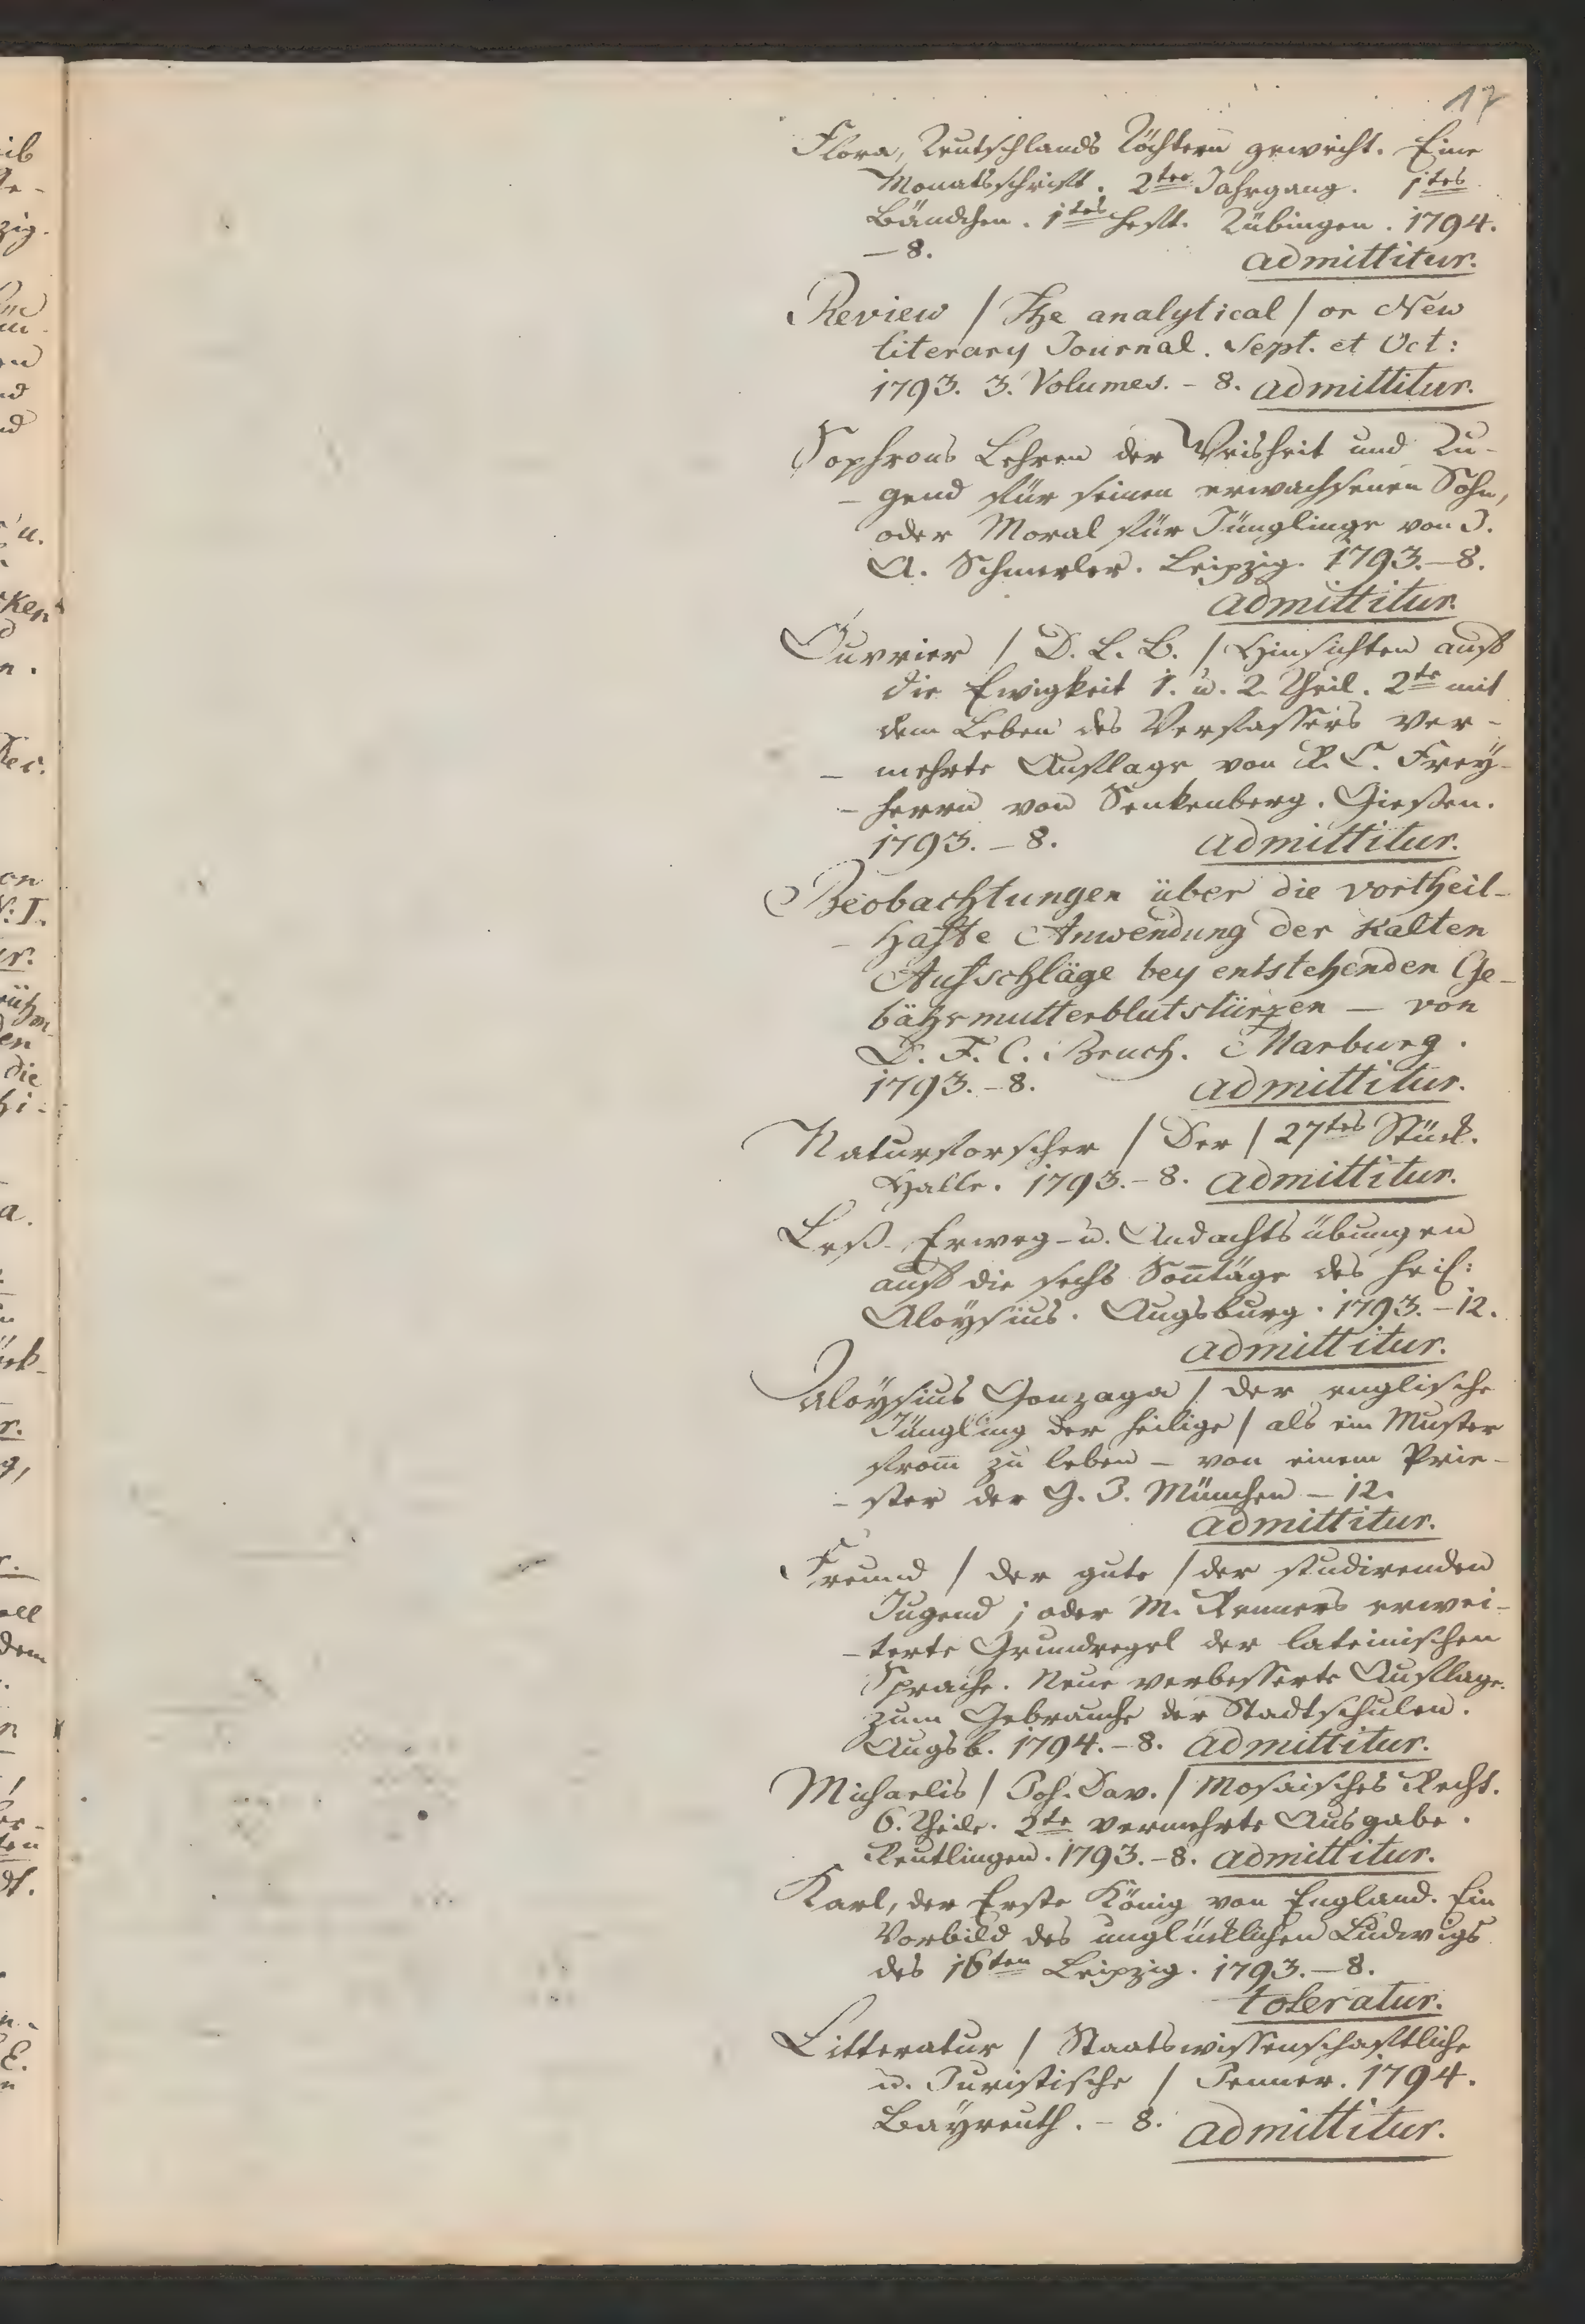 17
Flora, Teutschlands Töchtern geweiht. Eine
Monatsschrift. 2ter Jahrgang. 1tes
Bändchen. 1tes Heft. Tübingen. 1794.
— 8. admittitur.
Review / The analytical / or New
literary Journal. Sept. et Oct:
1793. 3. Volumes. – 8. admittitur.
Sophrons Lehren der Weisheit und Tu-
- gend für seinen erwachsenen Sohn,
oder Moral für Jünglinge von J.
A. Schmerler. Leipzig. 1793. – 8.
admittitur.
Ouvrier / D. L. B. / Hinsichten auf
die Ewigkeit 1. u. 2. Theil. 2te mit
dem Leben des Verfassers ver-
- mehrte Auflage von R. C. Frey-
- herrn von Senkenberg. Giessen.
1793. – 8. admittitur.
Beobachtungen über die vortheil-
- hafte Anwendung der kalten
Aufschläge bey entstehenden Ge-
bährmutterblutstürzen — von
D. F. C. Bruch. Marburg.
1793. – 8. admittitur.
Naturforscher / Der / 27tes Stück.
Halle. 1793. – 8. admittitur.
Leß- Erweg- u. Andachtsübungen
auf die sechs Son̅täge des heil:
Aloysius. Augsburg. 1793. – 12.
admittitur.
Aloysius Gonzaga / der englische
Jüngling der heilige / als ein Muster
from̅ zu leben – von einem Prie-
- ster der G. J. München – 12.
admittitur.
Freund / der gute / der studirenden
Jugend; oder M. Renners erwei-
- terte Grundregel der lateinischen
Sprache. Neue verbesserte Auflage.
zum Gebrauche der Stadtschulen.
Augsb. 1794. – 8. admittitur.
Michaelis / Joh. Dav. / Mosaisches Recht.
6. Theile. 2te vermehrte Ausgabe.
Reutlingen. 1793. – 8. admittitur.
Karl, der Erste König von England. Ein
Vorbild des unglücklichen Ludwigs
des 16ten Leipzig. 1793. – 8.
toleratur.
Litteratur / Staatswissenschaftliche
u. Juristische / Jenner. 1794.
Bayreuth. – 8. admittitur.